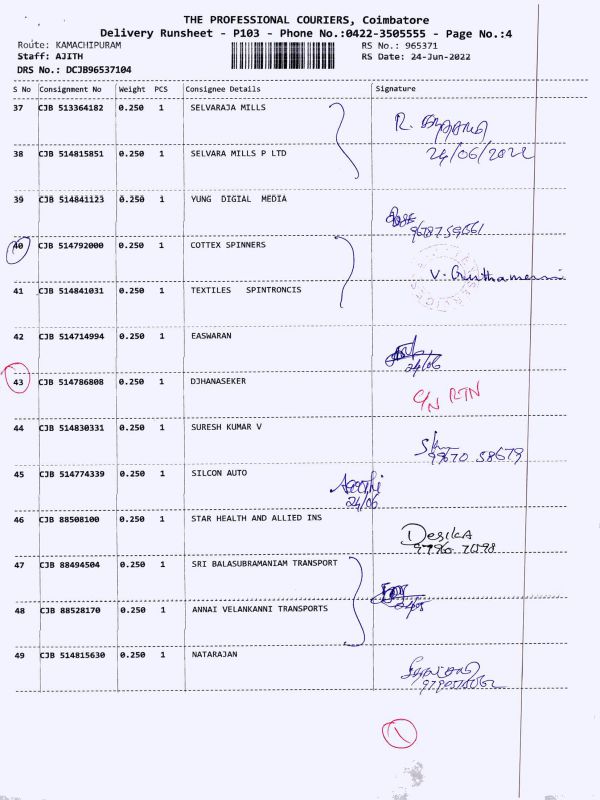 THE PROFESSIONAL COURIERS, Coimbatore
Delivery Runsheet - P103 - Phone No.:0422-3505555 - Page No.:4
Route: KAMACHIPURAM RS No.: 965371
Staff: AJITH RS Date: 24-Jun-2022
DRS No.: DCJB96537104
S No Consignment No Weight PCS Consignee Details Signature
37 CJB 513364182 0.250 1 SELVARAJA MILLS R.
38 CJB 514815851 0.250 1 SELVARA MILLS P LTD 24/06/2022
39 CJB 514841123 0.250 1 YUNG DIGIAL MEDIA
40 CJB 514792000 0.250 1 COTTEX SPINNERS
41 CJB 514841031 0.250 1 TEXTILES SPINTRONCIS
42 CJB 514714994 0.250 1 EASWARAN
24/06
43 CJB 514786808 0.250 1 DJHANASEKER
C/N RTN
44 CJB 514830331 0.250 1 SURESH KUMAR V
99670 58679
45 CJB 514774339 0.250 1 SILCON AUTO
24/06
46 CJB 88508100 0.250 1 STAR HEALTH AND ALLIED INS
Desika
47 CJB 88494504 0.250 1 SRI BALASUBRAMANIAM TRANSPORT
48 CJB 88528170 0.250 1 ANNAI VELANKANNI TRANSPORTS
49 CJB 514815630 0.250 1 NATARAJAN
1